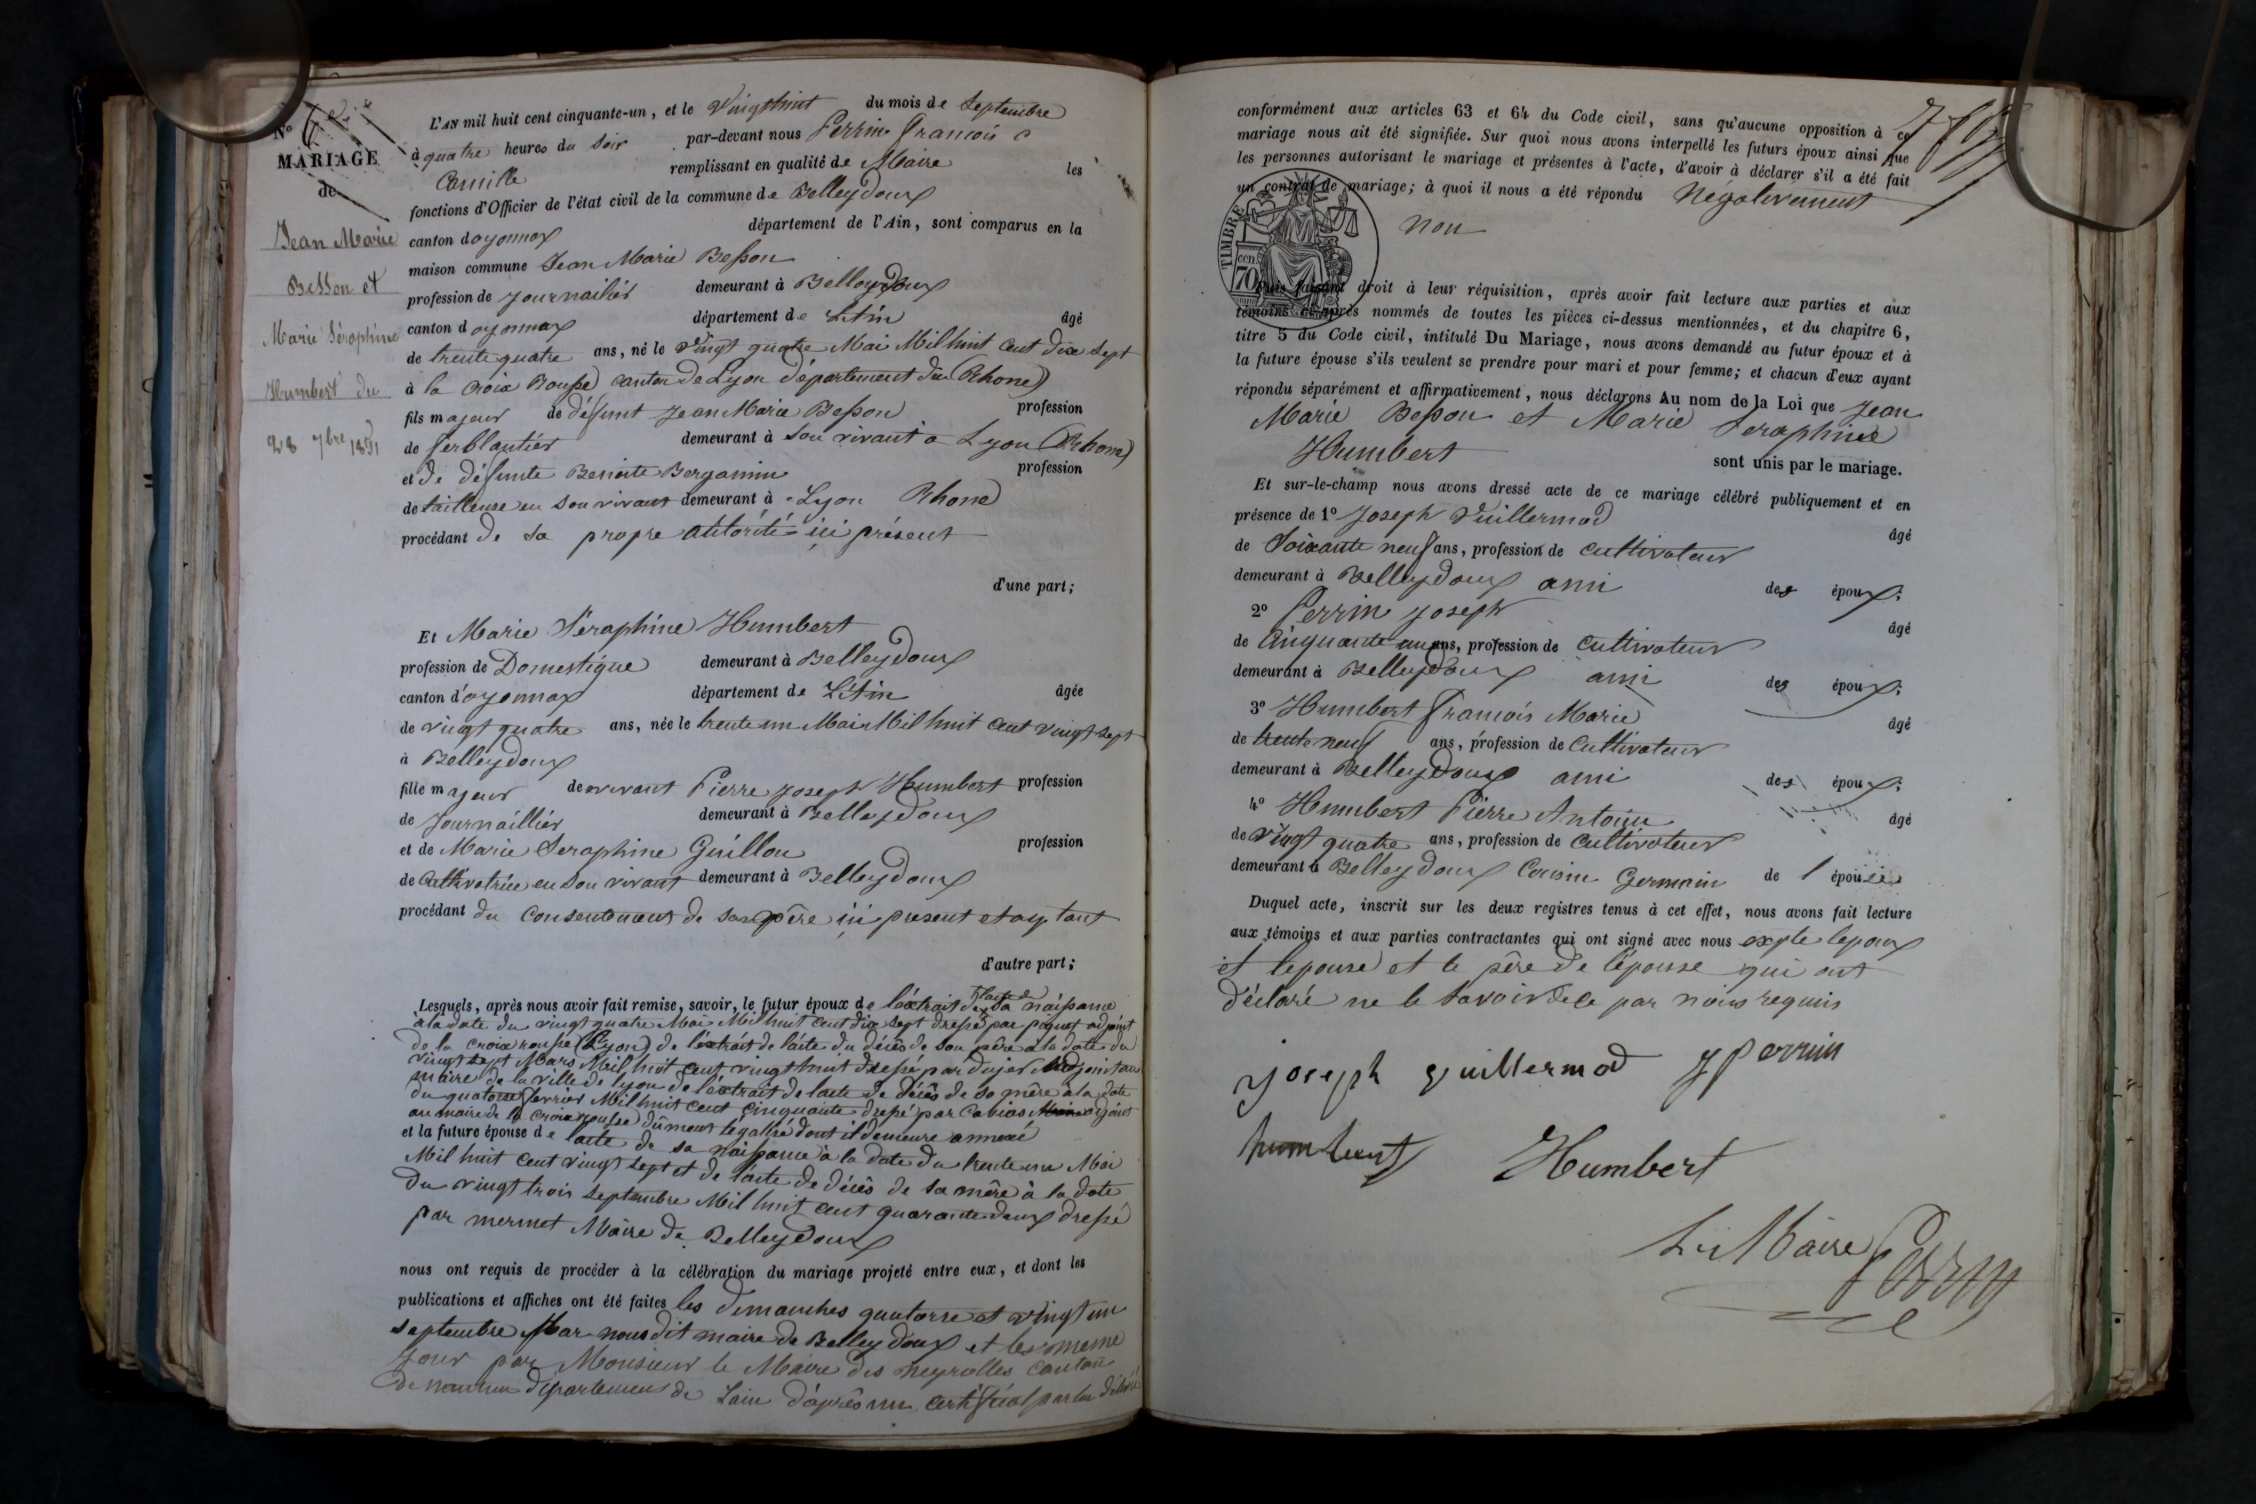 N° 6
MARIAGE
de
Jean Marie
Besson et
Marie Séraphine
Humbert du
28 7bre 1851
L'AN mil huit cent cinquante-un, et le Vingthuit du mois de Septembre
à quatre heures du Soir par-devant nous Perrin François
Camille remplissant en qualité de Maire les
fonctions d'Officier de l'état civil de la commune de Belleydoux
canton doyonnax département de l'Ain, sont comparus en la
maison commune Jean Marie Besson
profession de Journailiér demeurant à Belleydoux
canton d oyonnax département de L'Ain âgé
de trente quatre ans, né le vingt quatre Mai Mil huit Cent dix Sept
à la Croix Rousse canton de Lyon département du (Rhone)
fils majeur de défunt Jean Marie Besson profession
de ferblantiér demeurant à son vivant a Lyon (Rhone)
et de défunte Benoite Bergamin profession
de tailleuse en son vivant demeurant à Lyon Rhone
procédant de sa propre autorité ici présent
d'une part;
Et Marie Séraphine Humbert
profession de Domestique demeurant à Belleydoux
canton d'oyonnax département de L'Ain âgée
de vingt quatre ans, née le trente un Mai Mil huit Cent vingt Sept
à Belleydoux
fille majeur de vivant Pierre Joseph Humbert profession
de Journaillier demeurant à Belleydoux
et de Marie Seraphine Guillou profession
de Cultivatrice en son vivant demeurant à Belleydoux
procédant du Consentement de son père ici present et ayant
d'autre part;
Lesquels, après nous avoir fait remise, savoir, le futur époux de l'éxtrait de l'acte de sa naissance
à la date du vingt quatre Mai Mil huit Cent dix Sept dressé par paquet adjoint
de la Croix rousse (Lyon) de l'extrait de l'acte du décès de son père a la date du
vingt sept Mars Mil huit Cent vingt huit dressé par dujer Adjoint au
maire de la ville de Lyon de l'éxtrait de l'acte de décès de sa mère à la date
du quatorze fevrier Mil huit Cent Cinquante dressé par Cabias adjoint
au maire de la Croix rousse dûment legalisé dont il demeure annexé
et la future épouse de l'acte de sa naissance à la date du trente un Mai
Mil huit Cent vingt sept et de l'acte de décès de sa mère à la date
du vingt trois Septembre Mil huit Cent quarante deux dressé
par mermet Maire de Belleydoux
nous ont requis de procéder à la célébration du mariage projeté entre eux, et dont les
publications et affiches ont été faites les dimanches quatorze et vingt un
septembre par nous dit maire de Belleydoux et les meme
Jour par Monsieur le Maire des neyrolles Canton
de nantua département de Lain d'après un certificat par lui délivré
conformément aux articles 63 et 64 du Code civil, sans qu'aucune opposition à ce
mariage nous ait été signifiée. Sur quoi nous avons interpellé les futurs époux ainsi que
les personnes autorisant le mariage et présentes à l'acte, d'avoir à déclarer s'il a été fait
un contrat de mariage; à quoi il nous a été répondu Négativement
non
TIMBRE
70 cen.
Puis faisant droit à leur réquisition, après avoir fait lecture aux parties et aux
témoins ci-après nommés de toutes les pièces ci-dessus mentionnées, et du chapitre 6,
titre 5 du Code civil, intitulé Du Mariage, nous avons demandé au futur époux et à
la future épouse s'ils veulent se prendre pour mari et pour femme; et chacun d'eux ayant
répondu séparément et affirmativement, nous déclarons Au nom de la Loi que Jean
Marie Besson et Marie Seraphine
Humbert sont unis par le mariage.
Et sur-le-champ nous avons dressé acte de ce mariage célébré publiquement et en
présence de 1° Joseph Vuillermod âgé
de Soixante neuf ans, profession de Cultivateur
demeurant à Belleydoux ami des époux;
2° Perrin Joseph âgé
de Cinquante un ans, profession de Cultivateur
demeurant à Belleydoux ami des époux;
3° Humbert François Marie âgé
de trente neuf ans, profession de Cultivateur
demeurant à Belleydoux ami des époux;
4° Humbert Pierre Antoine âgé
de Vingt quatre ans, profession de Cultivateur
demeurant à Belleydoux Cousin Germain de l épouse
Duquel acte, inscrit sur les deux registres tenus à cet effet, nous avons fait lecture
aux témoins et aux parties contractantes qui ont signé avec nous expte lepoux
et lepouse et le père de l'épouse qui ont
déclaré ne le savoir de ce par nous requis
Joseph vuillermod J Perrin
humbert Humbert
Le Maire Perrin